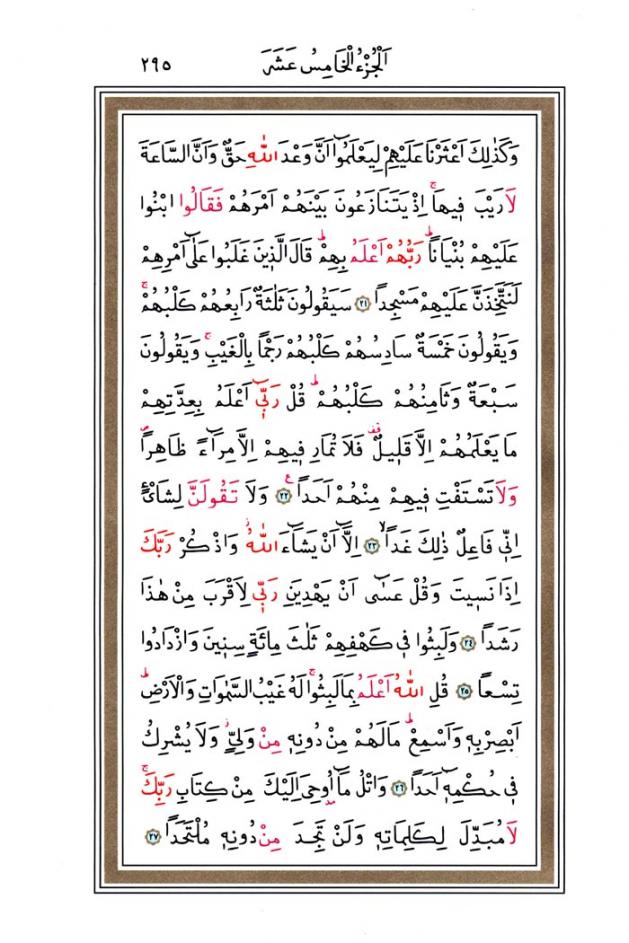 اَلْجُزْءُ الْخَامِسُ عَشَرَ ٢٩٥
وَكَذٰلِكَ اَعْثَرْنَا عَلَيْهِمْ لِيَعْلَمُٓوا اَنَّ وَعْدَ اللّٰهِ حَقٌّ وَاَنَّ السَّاعَةَ
لَا رَيْبَ فٖيهَاۚ اِذْ يَتَنَازَعُونَ بَيْنَهُمْ اَمْرَهُمْ فَقَالُوا ابْنُوا
عَلَيْهِمْ بُنْيَاناًؕ رَبُّهُمْ اَعْلَمُ بِهِمْؕ قَالَ الَّذٖينَ غَلَبُوا عَلٰٓى اَمْرِهِمْ
لَنَتَّخِذَنَّ عَلَيْهِمْ مَسْجِداً ﴿٢١﴾ سَيَقُولُونَ ثَلٰثَةٌ رَابِعُهُمْ كَلْبُهُمْۚ
وَيَقُولُونَ خَمْسَةٌ سَادِسُهُمْ كَلْبُهُمْ رَجْماً بِالْغَيْبِۚ وَيَقُولُونَ
سَبْعَةٌ وَثَامِنُهُمْ كَلْبُهُمْؕ قُلْ رَبّٖٓي اَعْلَمُ بِعِدَّتِهِمْ
مَا يَعْلَمُهُمْ اِلَّا قَلٖيلٌࣞ فَلَا تُمَارِ فٖيهِمْ اِلَّا مِرَٓاءً ظَاهِراًࣕ
وَلَا تَسْتَفْتِ فٖيهِمْ مِنْهُمْ اَحَداًࣖ ﴿٢٢﴾ وَلَا تَقُولَنَّ لِشَايْءٍ
اِنّٖي فَاعِلٌ ذٰلِكَ غَداًۙ ﴿٢٣﴾ اِلَّٓا اَنْ يَشَٓاءَ اللّٰهُؗ وَاذْكُرْ رَبَّكَ
اِذَا نَسٖيتَ وَقُلْ عَسٰٓى اَنْ يَهْدِيَنِ رَبّٖي لِاَقْرَبَ مِنْ هٰذَا
رَشَداً ﴿٢٤﴾ وَلَبِثُوا فٖي كَهْفِهِمْ ثَلٰثَ مِائَةٍ سِنٖينَ وَازْدَادُوا
تِسْعاً ﴿٢٥﴾ قُلِ اللّٰهُ اَعْلَمُ بِمَا لَبِثُواۚ لَهُ غَيْبُ السَّمٰوَاتِ وَالْاَرْضِؕ
اَبْصِرْ بِهٖ وَاَسْمِعْؕ مَا لَهُمْ مِنْ دُونِهٖ مِنْ وَلِيٍّؗ وَلَا يُشْرِكُ
فٖي حُكْمِهٖٓ اَحَداً ﴿٢٦﴾ وَاتْلُ مَٓا اُو۫حِيَ اِلَيْكَ مِنْ كِتَابِ رَبِّكَۚ
لَا مُبَدِّلَ لِكَلِمَاتِهٖ وَلَنْ تَجِدَ مِنْ دُونِهٖ مُلْتَحَداً ﴿٢٧﴾